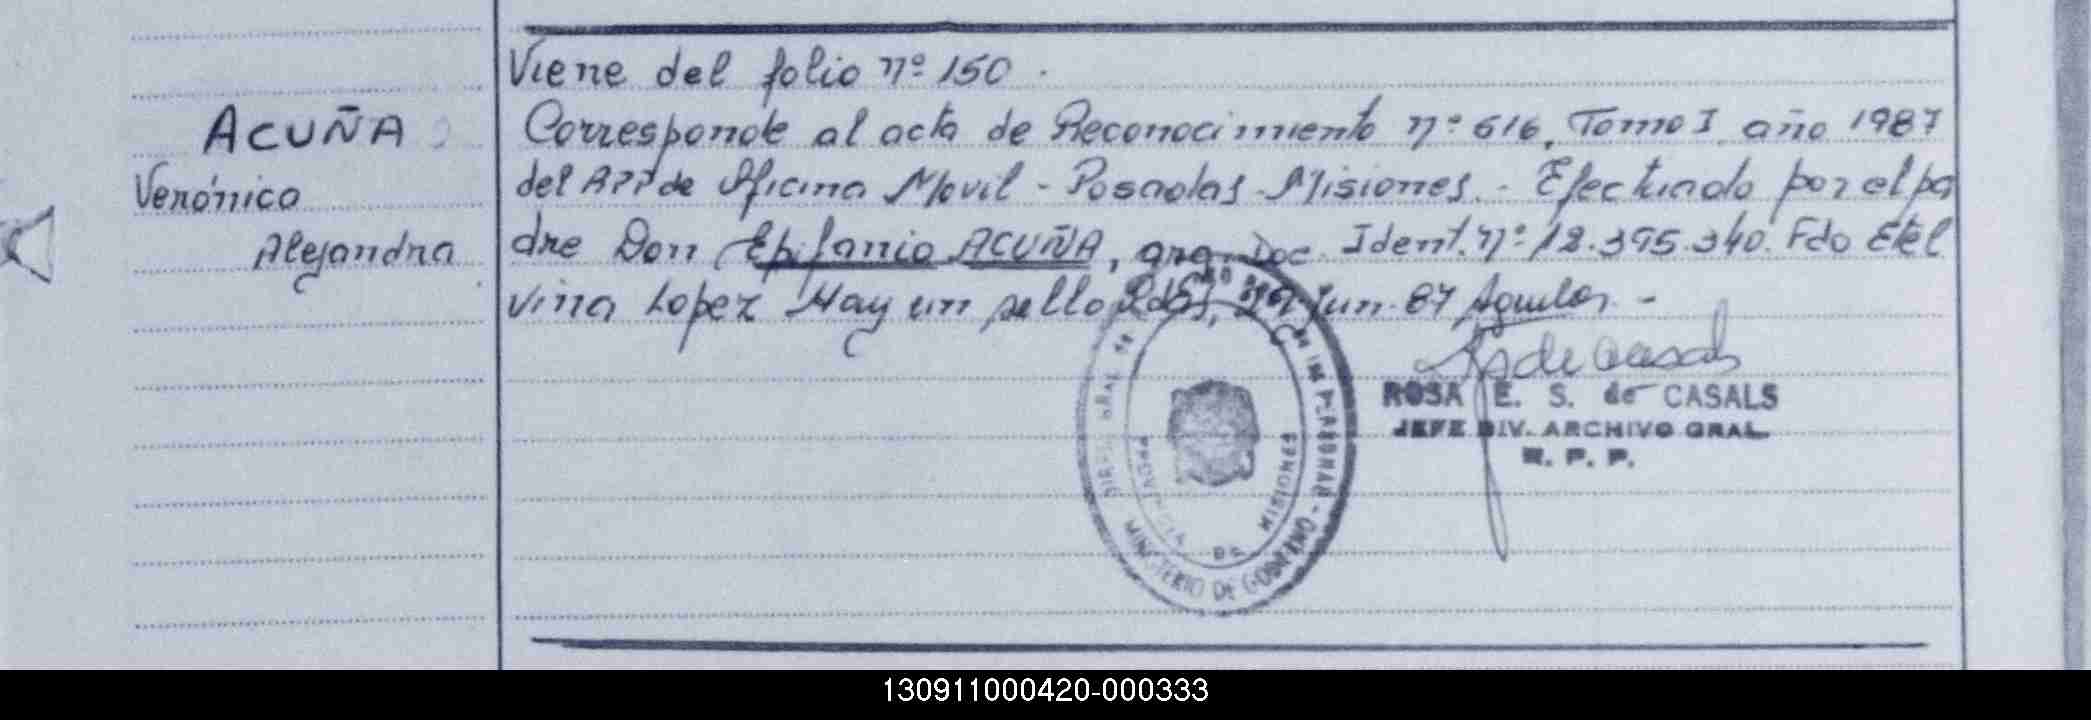 Viene del folio nº 150.
ACUÑA
Corresponde al acta de Reconocimiento nº 616, Tomo I, año 1987
Verónica
del RPP de Oficina Movil - Posadas - Misiones. - Efectuado por el pa
Alejandra
dre Don Epifanio ACUÑA, arg. Doc. Ident. nº 12.395.340. Fdo Etel
vina Lopez Hay un sello Pdas, Jun. 87 Aguilar. -
ROSA E. S. de CASALS
JEFE DIV. ARCHIVO GRAL.
R. P. P.
GRAL DE LAS PERSONAS - MINISTERIO DE GOBIERNO
PROVINCIA DE MISIONES
130911000420-000333